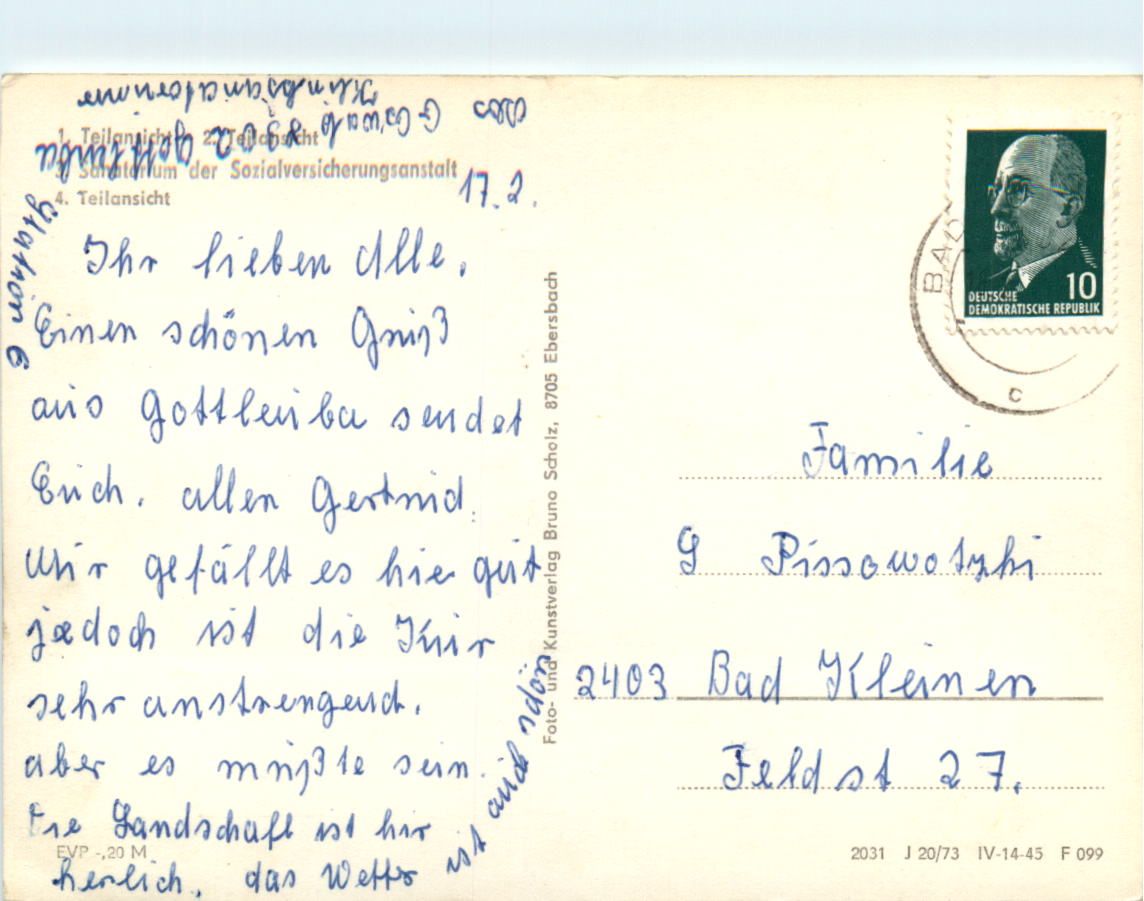 Abs
G Oswald 8302 Gottleuba
Klinksanatorium
Station 6
1. Teilansicht 2. Teilansicht
3. Sanatorium der Sozialversicherungsanstalt
4. Teilansicht
17. 2.
Ihr lieben Alle.
Einen schönen Gruß
aus Gottleuba sendet
Euch. allen Gertrud.
Mir gefällt es hier gut
jedoch ist die Kur
sehr anstrengend.
aber es mußte sein.
Die Landschaft ist hir
herlich. das Wetter
ist auch schön
EVP -,20 M
Foto- und Kunstverlag Bruno Scholz, 8705 Ebersbach
BAD
C
10
DEUTSCHE
DEMOKRATISCHE REPUBLIK
Familie
G Pissowotzki
2403 Bad Kleinen
Feldst 27.
2031 J 20/73 IV-14-45 F 099